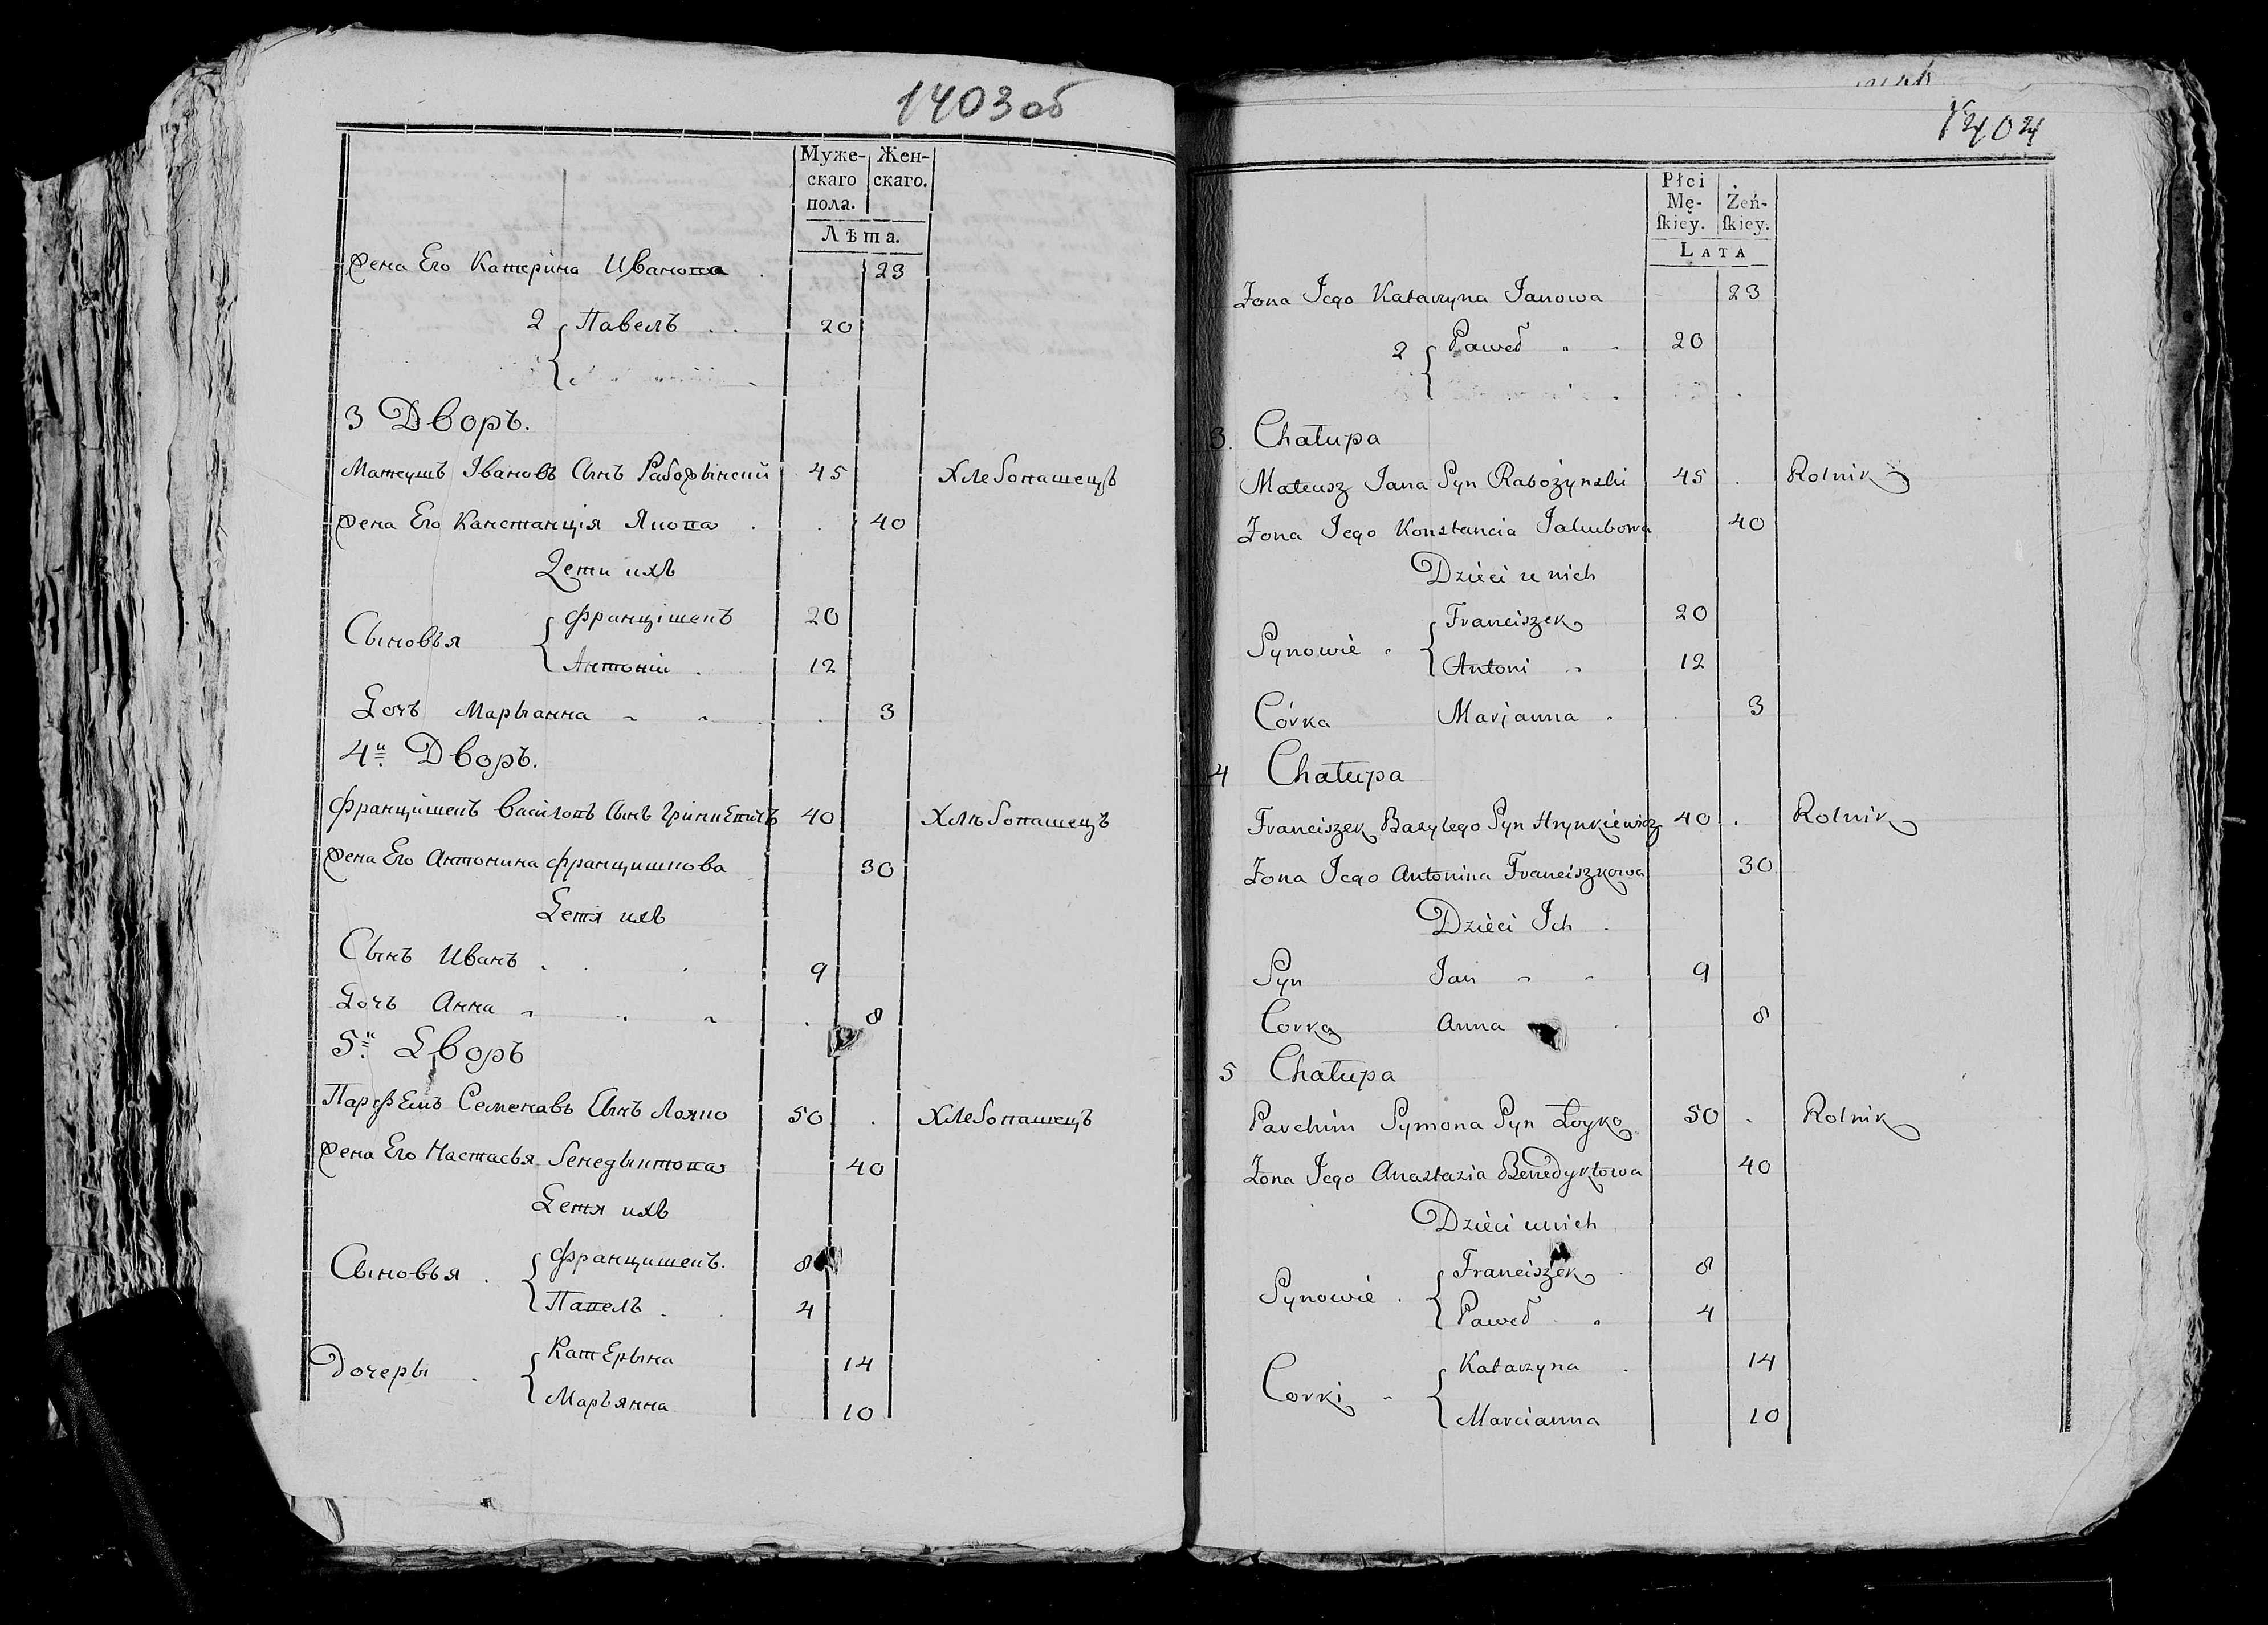 1403 об
Муже- Жен-
скаго скаго.
пола.
Лѣта.
Жена Его Катерина Иванова 23
2 Павелъ 20
3 Дворъ.
Матеушъ Івановъ Сынъ Рабожынский 45 Хлебопашецъ
Жена Его Канстанція 40
Дети ихъ
Сыновья
Францішекъ 20
Антоній 12
Дочь Марыанна 3
4й Дворъ.
Францишекъ Васіловъ Сынъ Гринкевичъ 40 Хлѣбопашецъ
Жена Его Антонина Францишкова 30
Детя ихъ
Сынъ Иванъ 9
Дочь Анна 8
5й Дворъ
Парфемъ Семенавъ Сынъ Лояко 50 Хлебопашецъ
Жена Его Настасья Бенедыктова 40
Детя ихъ
Сыновья
Францишекъ. 8
Павелъ 4
Дочеры
Катерына 14
Марьянна 10
1404
Płci
Mę- Żeń-
ſkiey. ſkiey.
LATA
Żona Jego Katarzyna Janowa 23
2 Paweł 20
3. Chałupa
Mateusz Jana Syn Rabożynski 45 Rolnik
Żona Jego Konstancia Jakubowa 40
Dzieci u nich
Synowie
Franciszek 20
Antoni 12
Córka Marjanna 3
4 Chałupa
Franciszek Bazylego Syn Hrynkiewicz 40 Rolnik
Żona Jego Antonina Franciszkowa 30
Dzieci Ich
Syn Jan 9
Corka Anna 8
5 Chałupa
Parchim Symona Syn Łoyko 50 Rolnik
Żona Jego Anastazia Benedyktowa 40
Dzieci u nich
Synowie
Franciszek 8
Paweł 4
Corki
Katarzyna 14
Marcianna 10